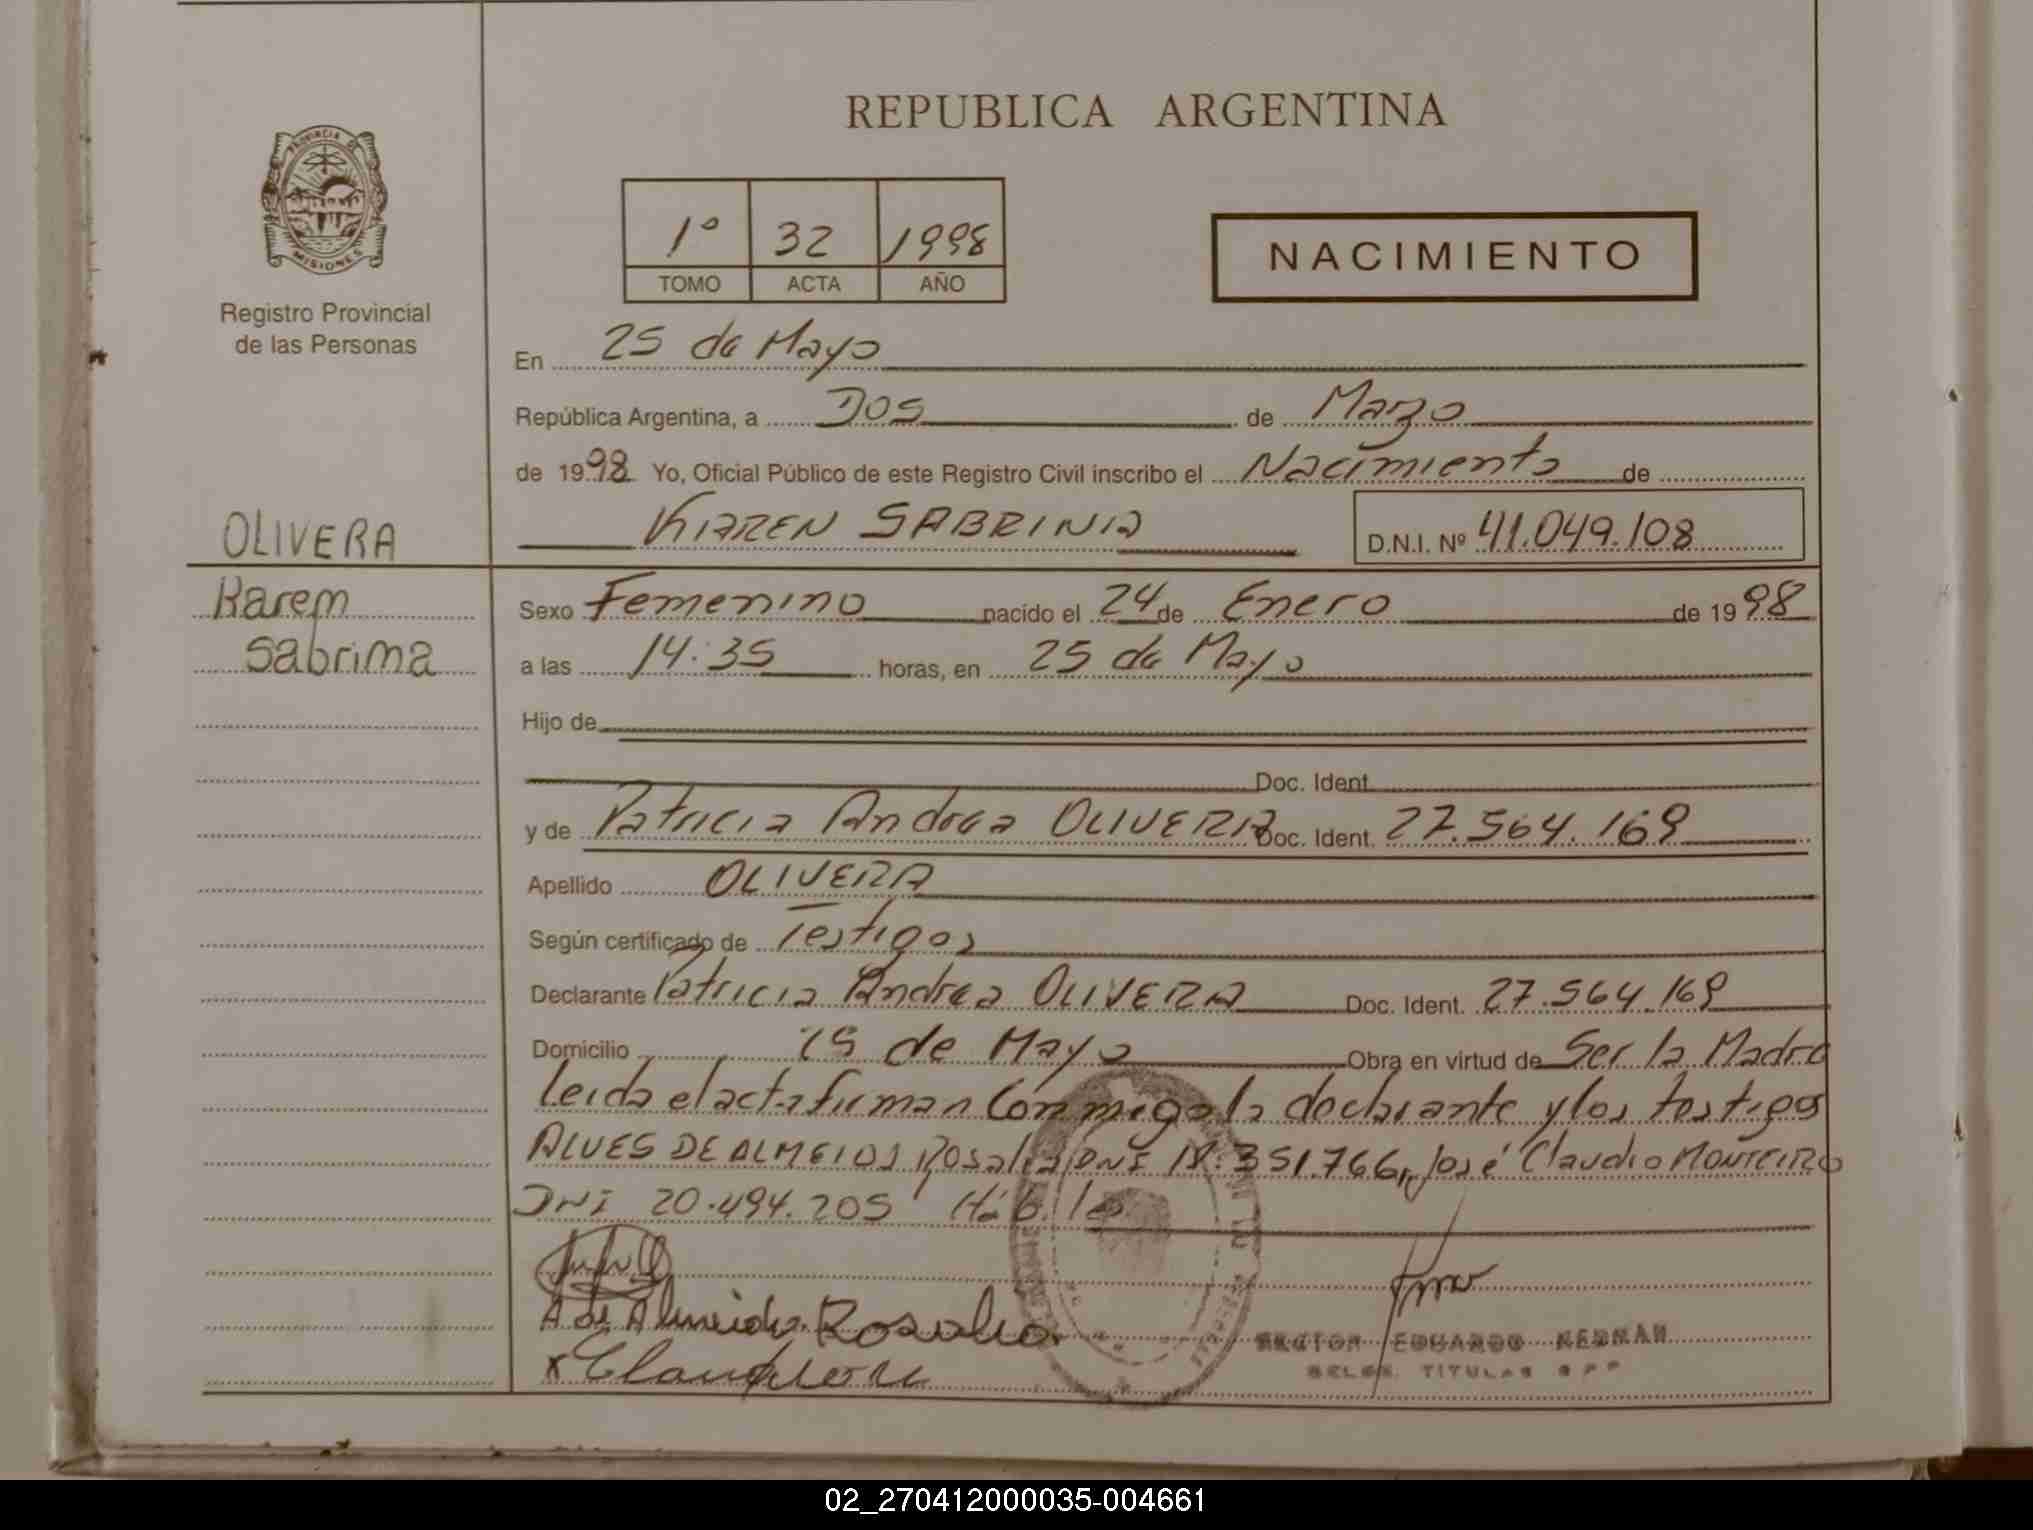 REPUBLICA ARGENTINA
PROVINCIA DE
MISIONES
Registro Provincial
de las Personas
1º 32 1998
TOMO ACTA AÑO
NACIMIENTO
En 25 de Mayo
República Argentina, a Dos de Marzo
de 1998 Yo, Oficial Público de este Registro Civil inscribo el Nacimiento de
KAREN SABRINA D.N.I. Nº 41.049.108
OLIVERA
Karem
Sabrima
Sexo Femenino nacido el 24 de Enero de 1998
a las 14:35 horas, en 25 de Mayo
Hijo de
Doc. Ident.
y de Patricia Andrea OLIVERA Doc. Ident. 27.564.169
Apellido OLIVERA
Según certificado de Testigos
Declarante Patricia Andrea OLIVERA Doc. Ident. 27.564.169
Domicilio 25 de Mayo Obra en virtud de Ser la Madre
leida el acta firman conmigo la declarante y los testigos
ALVES DE ALMEIDA Rosalia DNI 18.351.766, José Claudio MONTEIRO
DNI 20.494.205 Hábiles
A de Almeida Rosalia
HECTOR EDUARDO
TITULAR
02_270412000035-004661